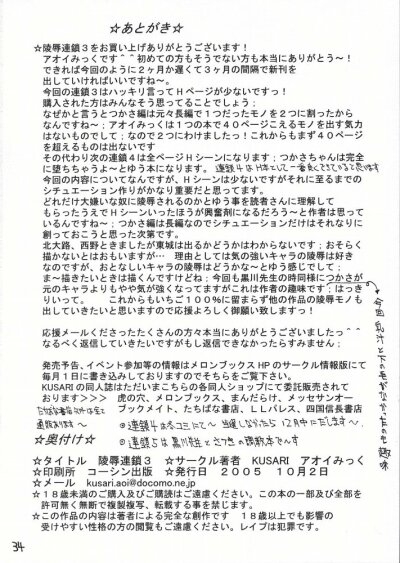 ☆あとがき☆
☆陵辱連鎖３をお買い上げありがとうございます！
アオイみっくです＾＾初めての方もそうでない方も本当にありがとう～！
できれば今回のように２ヶ月か遅くて３ヶ月の間隔で新刊を
出していければいいですね～。
今回の連鎖３はハッキリ言ってＨページが少ないですっ！
購入された方はみんなそう思ってることでしょう；
なぜかと言うとつかさ編は元々長編で１つだったモノを２に割ったから
なんですね～；アオイみっくは１つの本で４０ページこえるモノを出す気力
はないものでして；なので２つにわけましたっ！これからもまず４０ページ
を超えるものは出ないです
その代わり次の連鎖４は全ページＨシーンになります；つかさちゃんは完全
に堕ちちゃうよ～とゆう本になります。
今回の内容についてなんですが、Ｈシーンは少ないですがそれに至るまでの
シチュエーション作りがかなり重要だと思ってます。
どれだけ大嫌いな奴に陵辱されるのかとゆう事を読者さんに理解して
もらったうえでＨシーンいったほうが興奮剤になるだろう～と作者は思って
いるんですね～；つかさ編は長編なのでシチュエーションだけはそれなりに
創っておこうと思った次第です。
北大路、西野ときましたが東城は出るかどうかはわからないです；おそらく
描かないとはおもいますが… 理由としては気の強いキャラの陵辱は好き
なのですが、おとなしいキャラの陵辱はどうかな～とゆう感じでして；
ま～描きたいときは描くんですけどね；今回も黒川先生の時同様につかさが
元のキャラよりもやや気が強くなってますがこれは作者の趣味です；はっき
りいって。 これからもいちご１００％に留まらず他の作品の陵辱モノも
出していきたいと思いますので応援よろしく御願い致しますっ！
今回乳汁と下の毛がなかったのも趣味
応援メールくださったたくさんの方々本当にありがとうございましたっ＾＾
なるべく返信していきたいですがもし返信できなかったらすみません；
発売予告、イベント参加等の情報はメロンブックスＨＰのサークル情報版にて
毎月１日に書き込みしておりますのでそちらをご覧下さい。
KUSARIの同人誌はただいまこちらの各同人ショップにて委託販売されて
おります＞＞＞ 虎の穴、メロンブックス、まんだらけ、メッセサンオー
ブックメイト、たちばな書店、ＬＬパレス、四国信長書店
☆奥付け☆
☆タイトル 陵辱連鎖３ ☆サークル著者 KUSARI アオイみっく
☆印刷所 コーシン出版 ☆発行日 ２００５ １０月２日
☆メール kusari.aoi@docomo.ne.jp
☆１８歳未満のご購入及びご購読はご遠慮ください。この本の一部及び全部を
許可無く無断で複製複写、転載する事を禁じます。
☆この作品の内容は著者による完全な創作です １８歳以上でも影響の
受けやすい性格の方の閲覧もご遠慮ください。レイプは犯罪です。
34